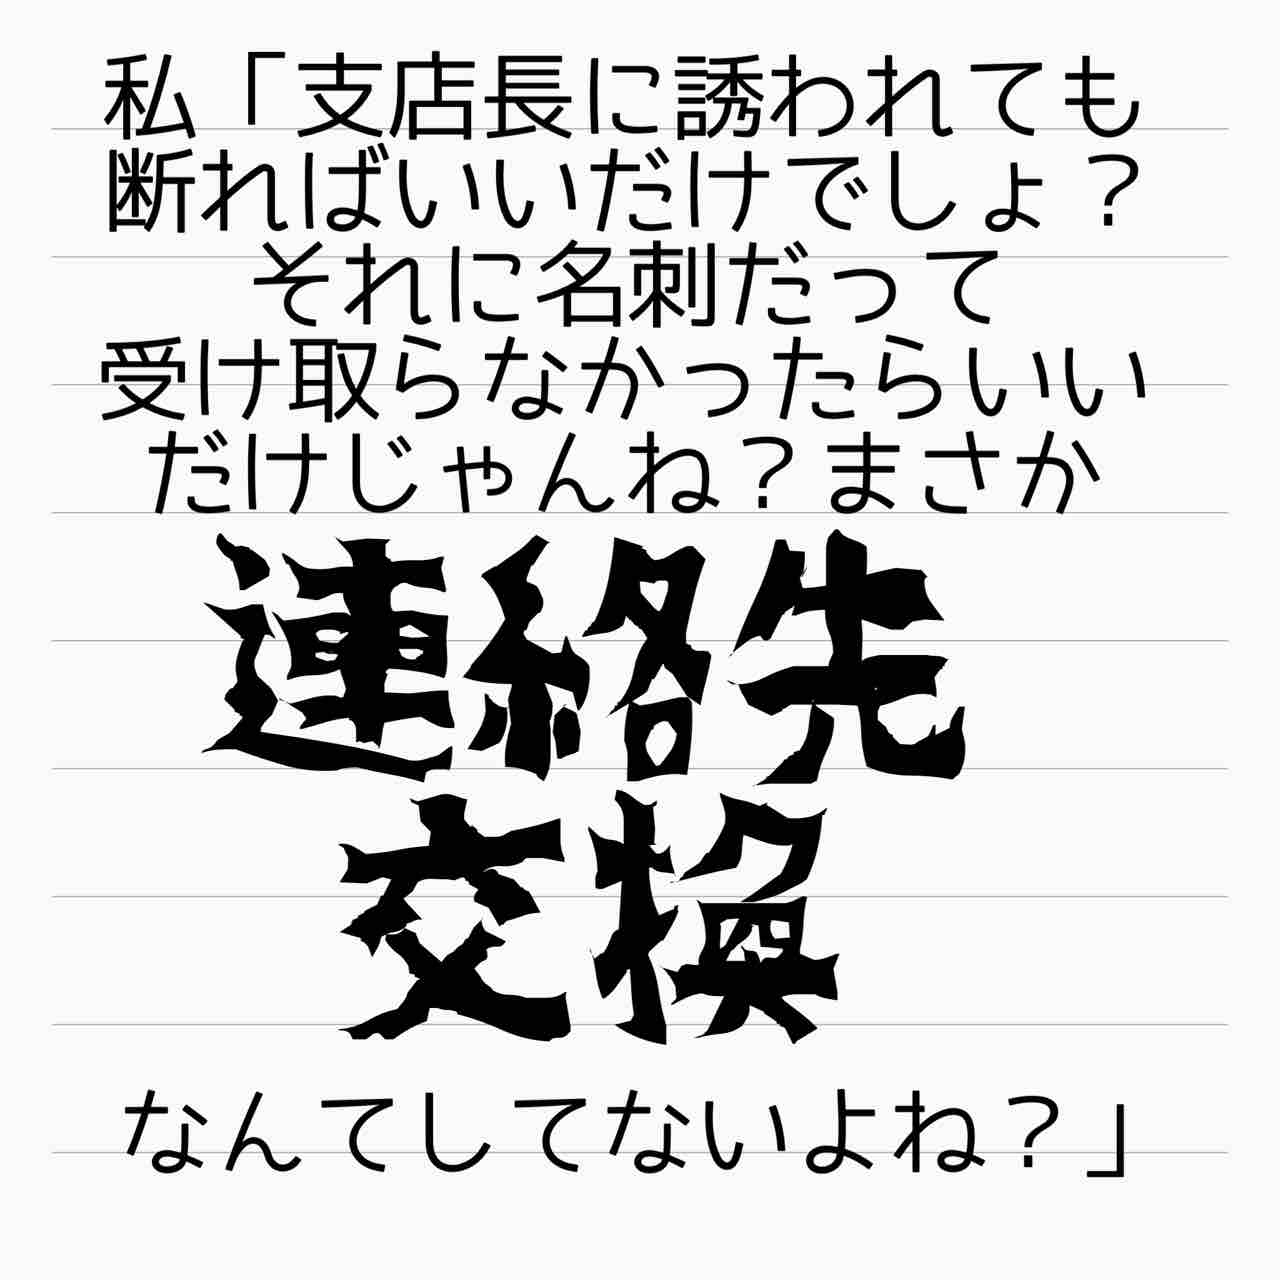 私「支店長に誘われても
断ればいいだけでしょ？
それに名刺だって
受け取らなかったらいい
だけじゃんね？まさか
連絡先
交換
なんてしてないよね？」